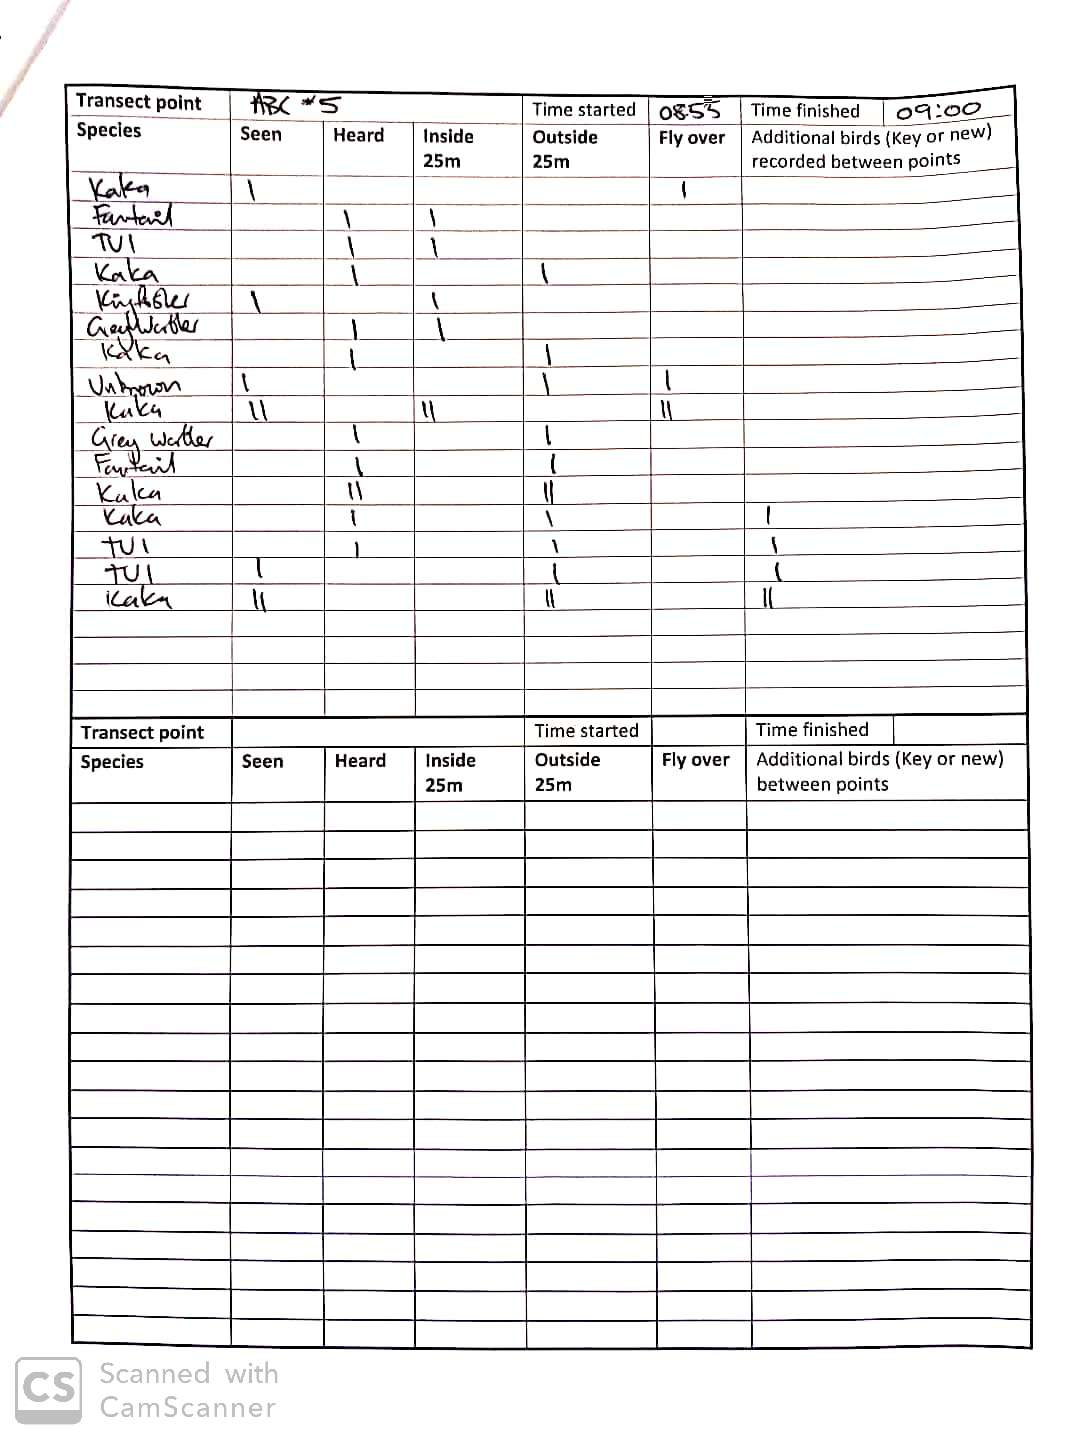 Transect point ABC #5 Time started 0855 Time finished 09:00
Species Seen Heard Inside 25m Outside 25m Fly over Additional birds (Key or new) recorded between points
Kaka I I
Fantail I I
TUI I I
Kaka I I
Kingfisher I I
Grey Warbler I I
Kaka I I
Unknown I I I
Kaka II II II
Grey Warbler I I
Fantail I I
Kaka II II
Kaka I I I
TUI I I I
TUI I I I
Kaka II II II
Transect point Time started Time finished
Species Seen Heard Inside 25m Outside 25m Fly over Additional birds (Key or new) between points
CS Scanned with
CamScanner